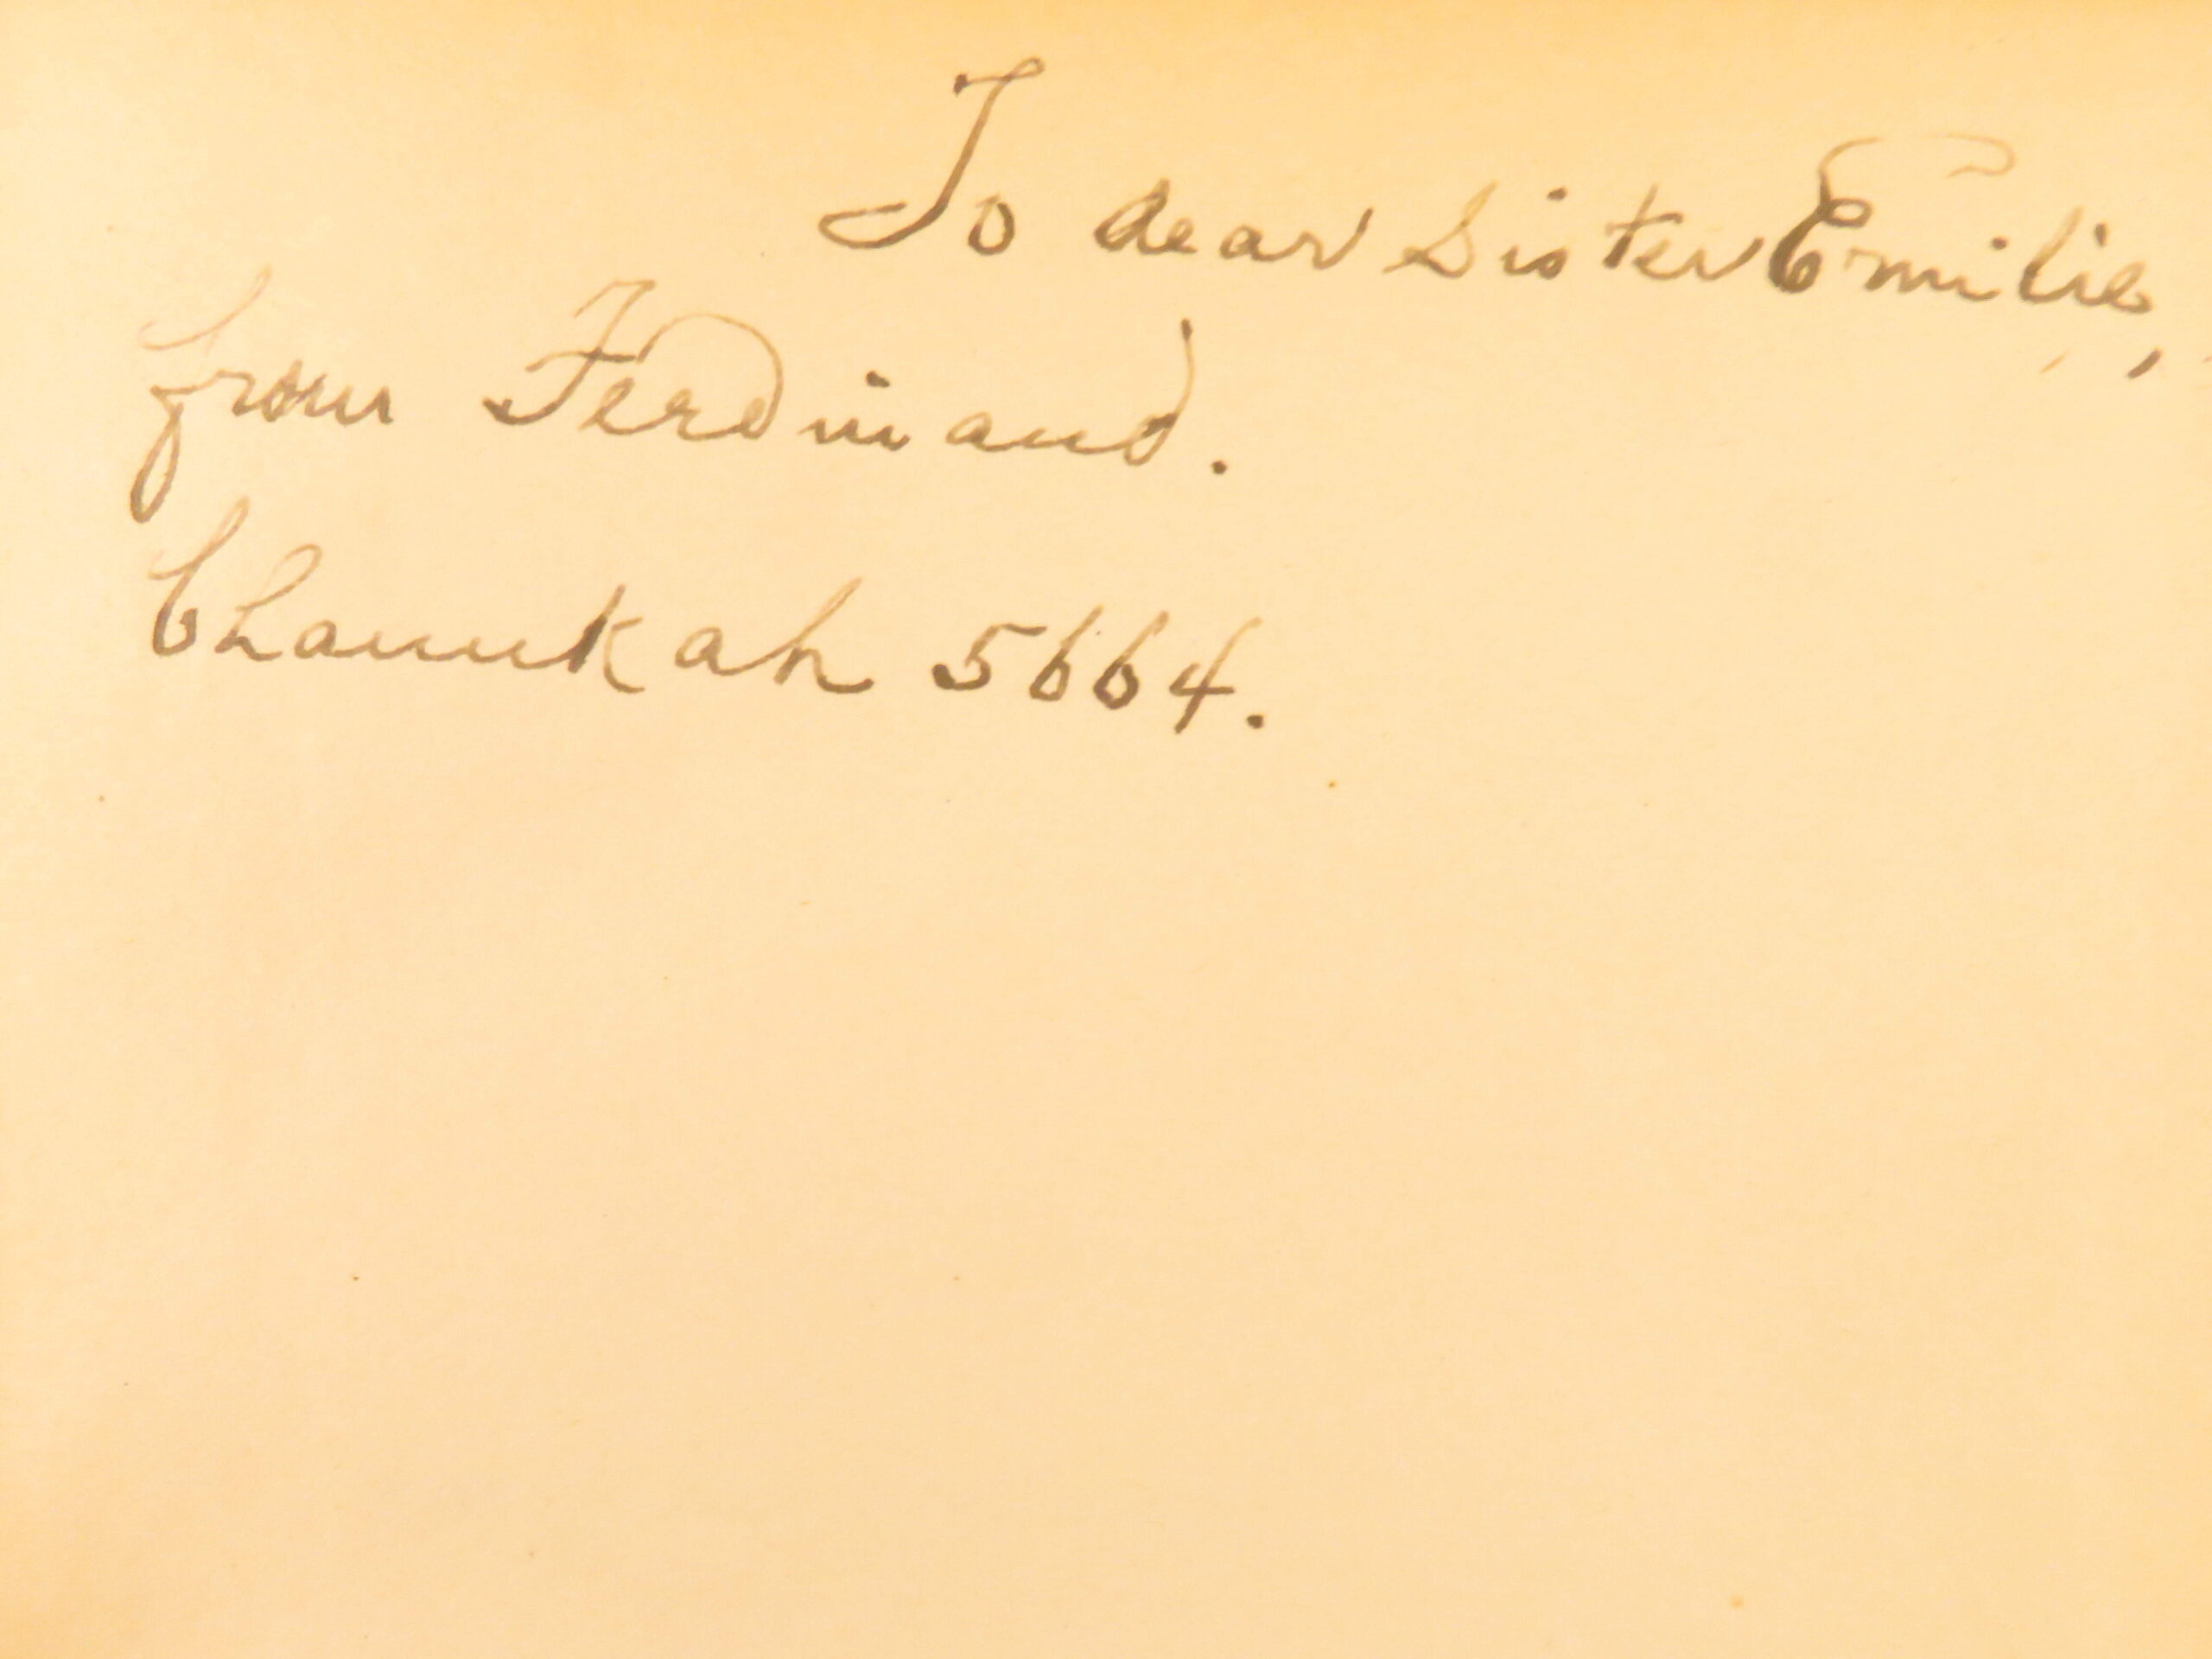 To dear Sister Emilie,
from Ferdinand.
Chanukah 5664.